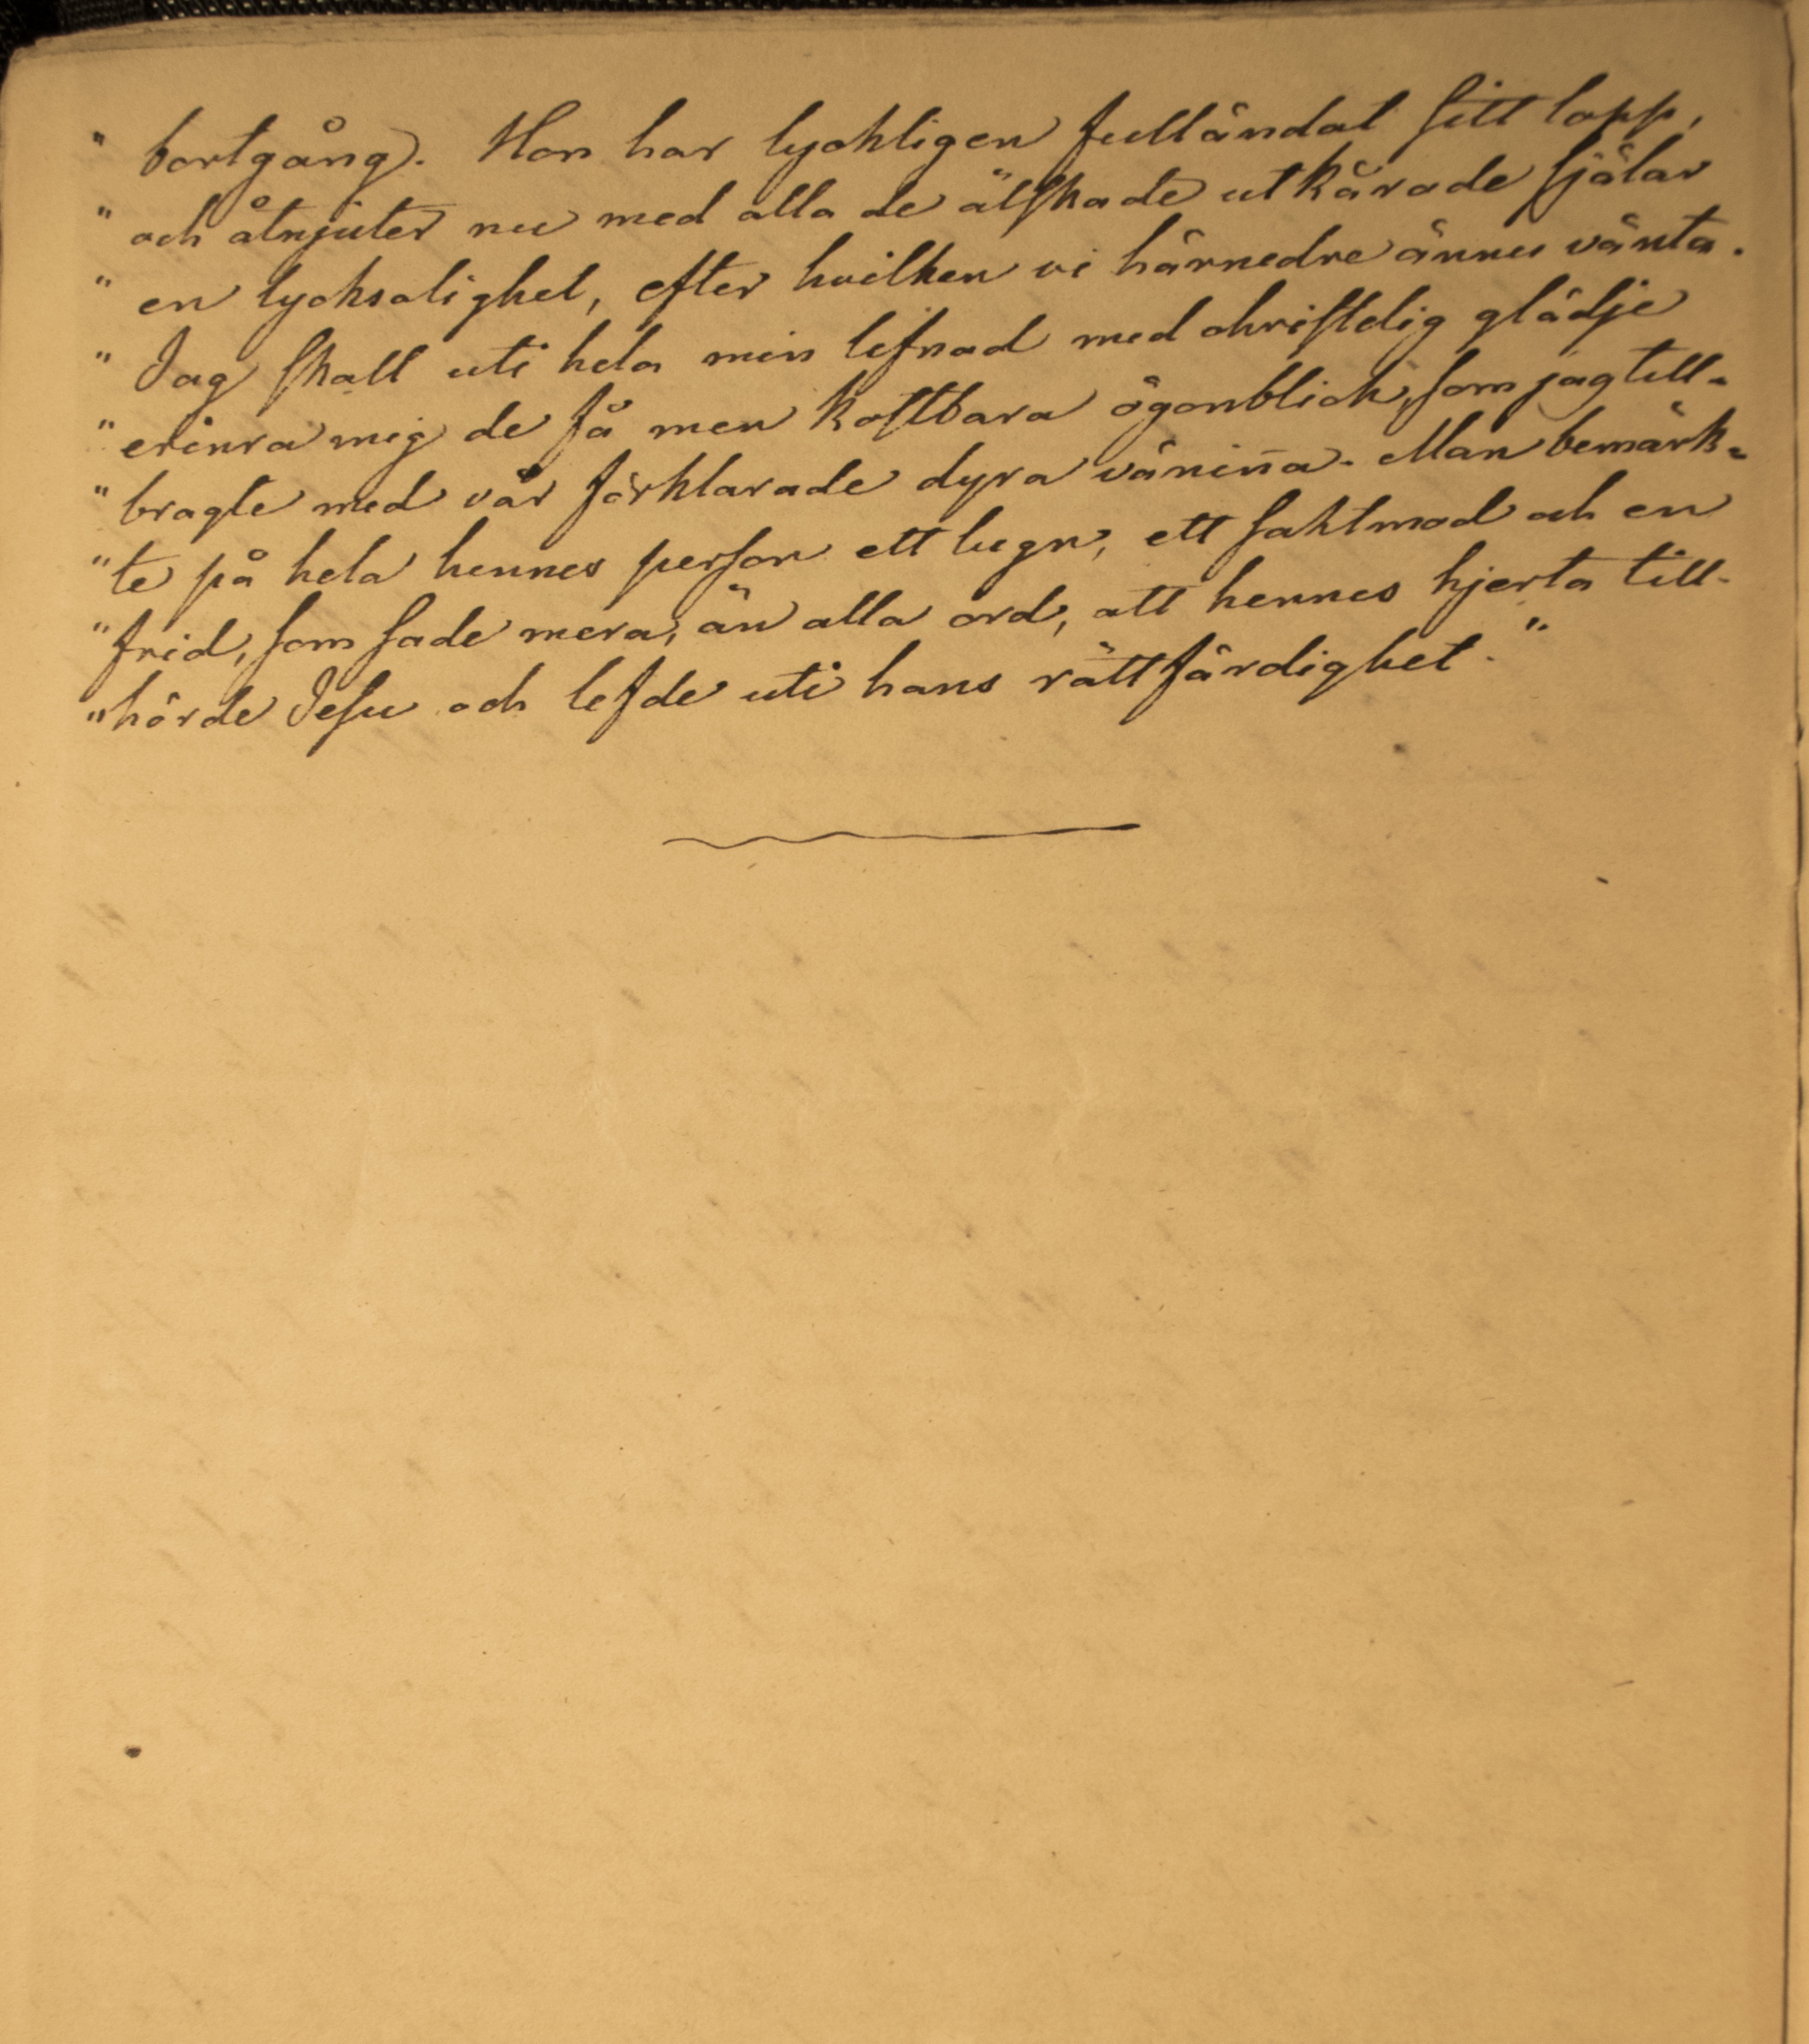 " bortgång. Hon har lyckligen fulländat sitt lopp,
" och åtnjuter nu med alla de älskade utkårade själar
" en lycksalighet, efter hvilken vi härnedre ännu vänta.
" Jag skall uti hela min lefnad med christelig glädje
" erinra mig de få men kostbara ögonblick, som jag till-
" bragte med vår förklarade dyra väniña. Man bemärk-
" te på hela hennes person ett lugn, ett saktmod och en
" frid, som sade mera, än alla ord, att hennes hjerta till-
" hörde Jesu och lefde uti hans rättfärdighet."